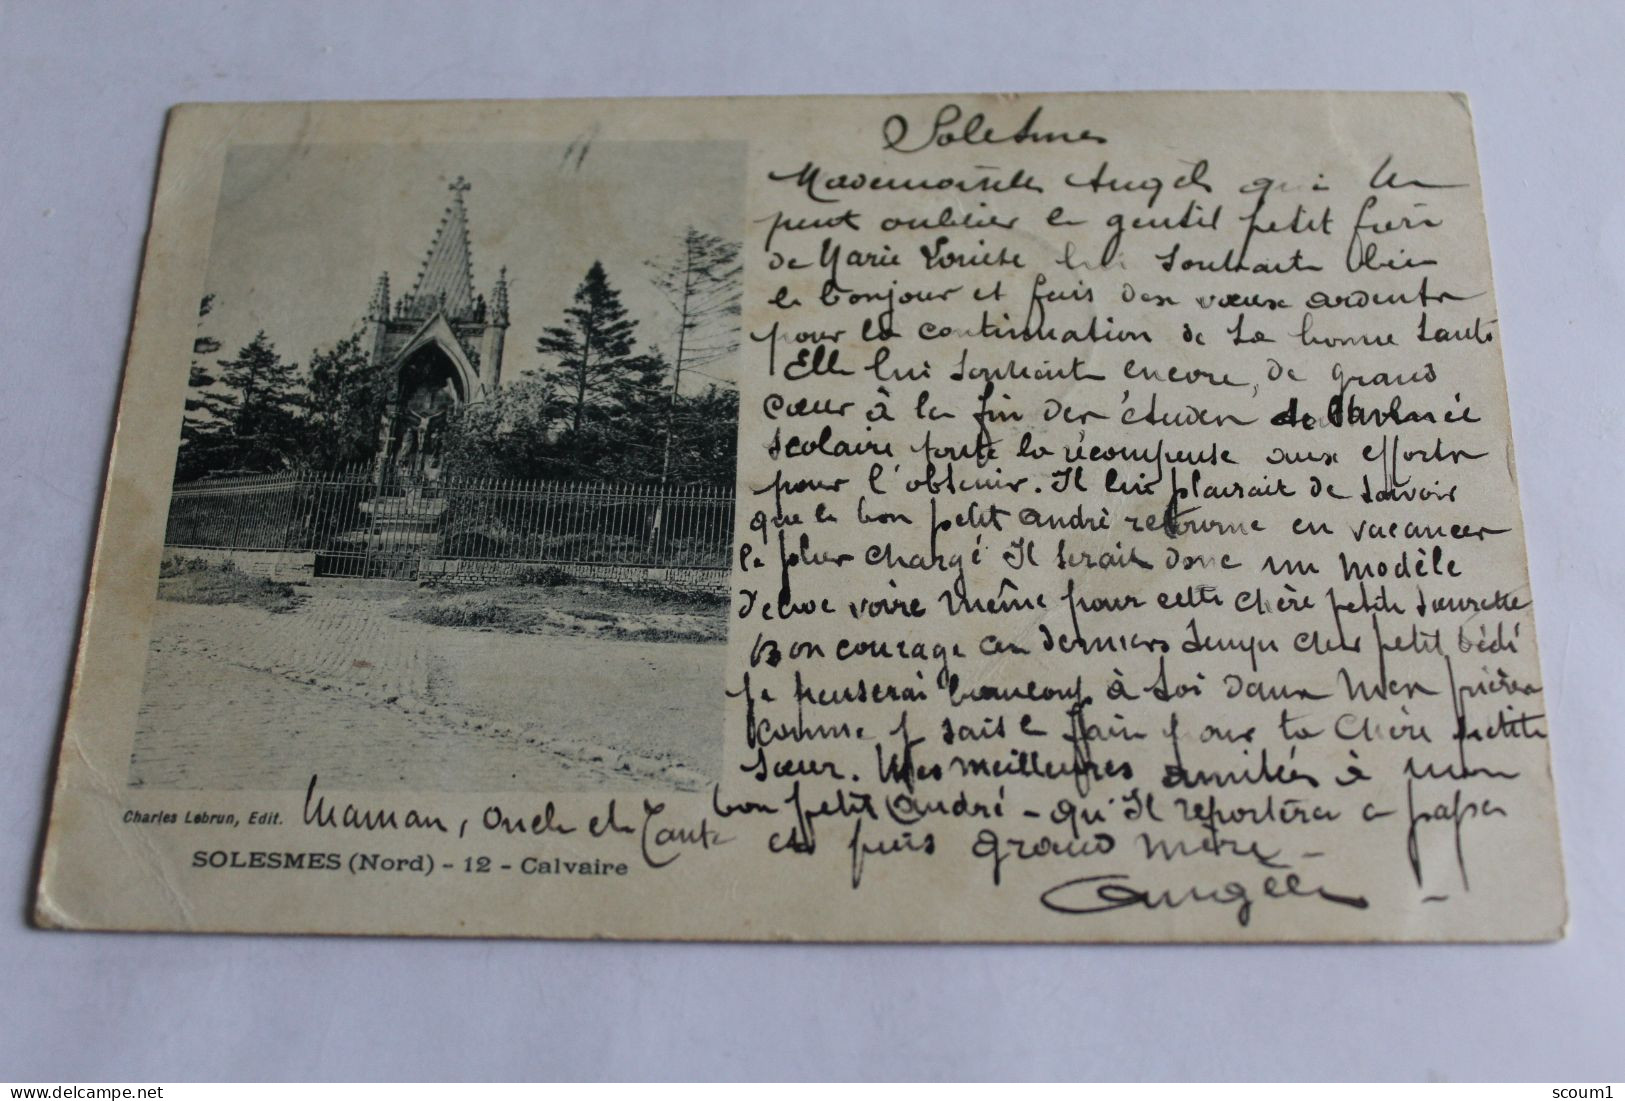 Solesmes
Mademoiselle Angèle qui ne
peut oublier le gentil petit frère
de Marie Louise lui souhaite bien
le bonjour et fais des vœux ardents
pour la continuation de sa bonne santé
Elle lui souhaite encore, de grand
cœur à la fin des études de l'année
scolaire toute la récompense aux efforts
pour l'obtenir. Il lui plairait de savoir
que le bon petit andré retourne en vacances
le plus chargé Il serait donc un modèle
voire même pour cette chère petite sœurette
Bon courage ces derniers temps cher petit bédé
je penserai beaucoup à toi dans mes prières
comme je sais le faire pour ta chère petite
sœur. Mes meilleures amitiés à mon
bon petit André - qu'Il reportera a papa
Maman, oncle et Tante et puis grand mère -
Angèle -
Charles Lebrun, Edit.
SOLESMES (Nord) - 12 - Calvaire
delcampe.net
scoum1